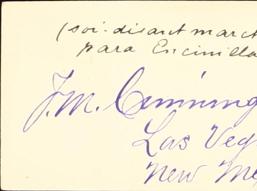 (soi-disant marc
para Encinilla
J.M. Cunning
Las Veg
New Me